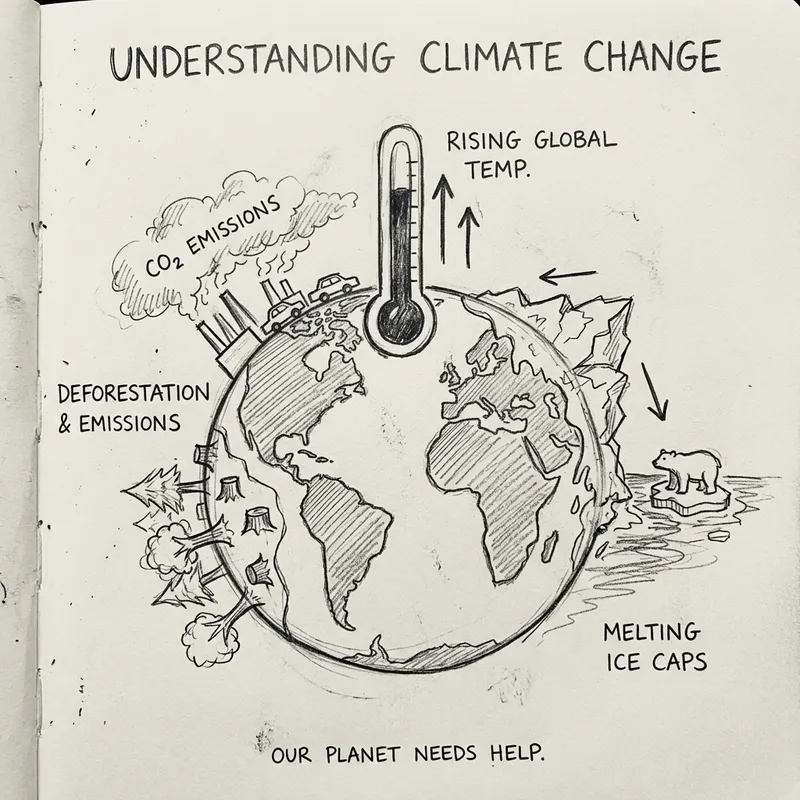 UNDERSTANDING CLIMATE CHANGE
RISING GLOBAL
TEMP.
CO₂ EMISSIONS
DEFORESTATION
& EMISSIONS
MELTING
ICE CAPS
OUR PLANET NEEDS HELP.